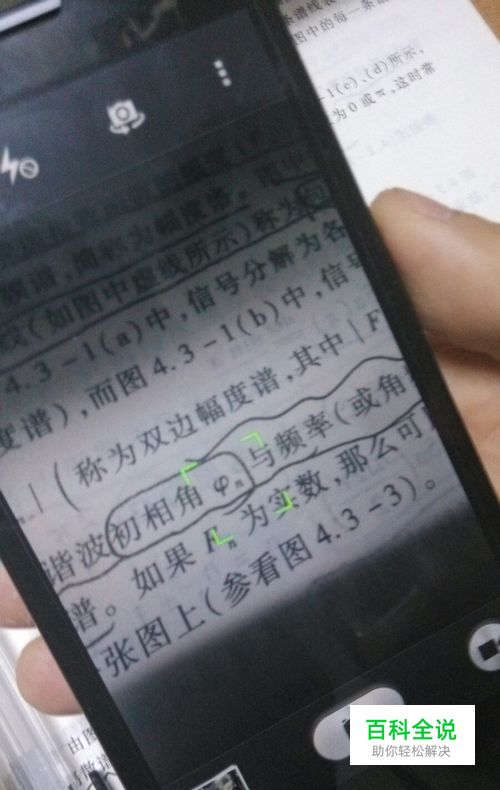 条谱线
图中的每一条
-1(c)、(d)所示,
为0或π,这时常
频谱,简称为幅度谱。
线(如图中虚线所示)称为包
4.3-1(a)中,信号分解为各
度谱),而图4.3-1(b)中,信号
|(称为双边幅度谱,其中|F
谐波初相角φn与频率(或角
谱。如果Fn为实数,那么可
张图上(参看图4.3-3)。
由图
百科全说
助你轻松解决